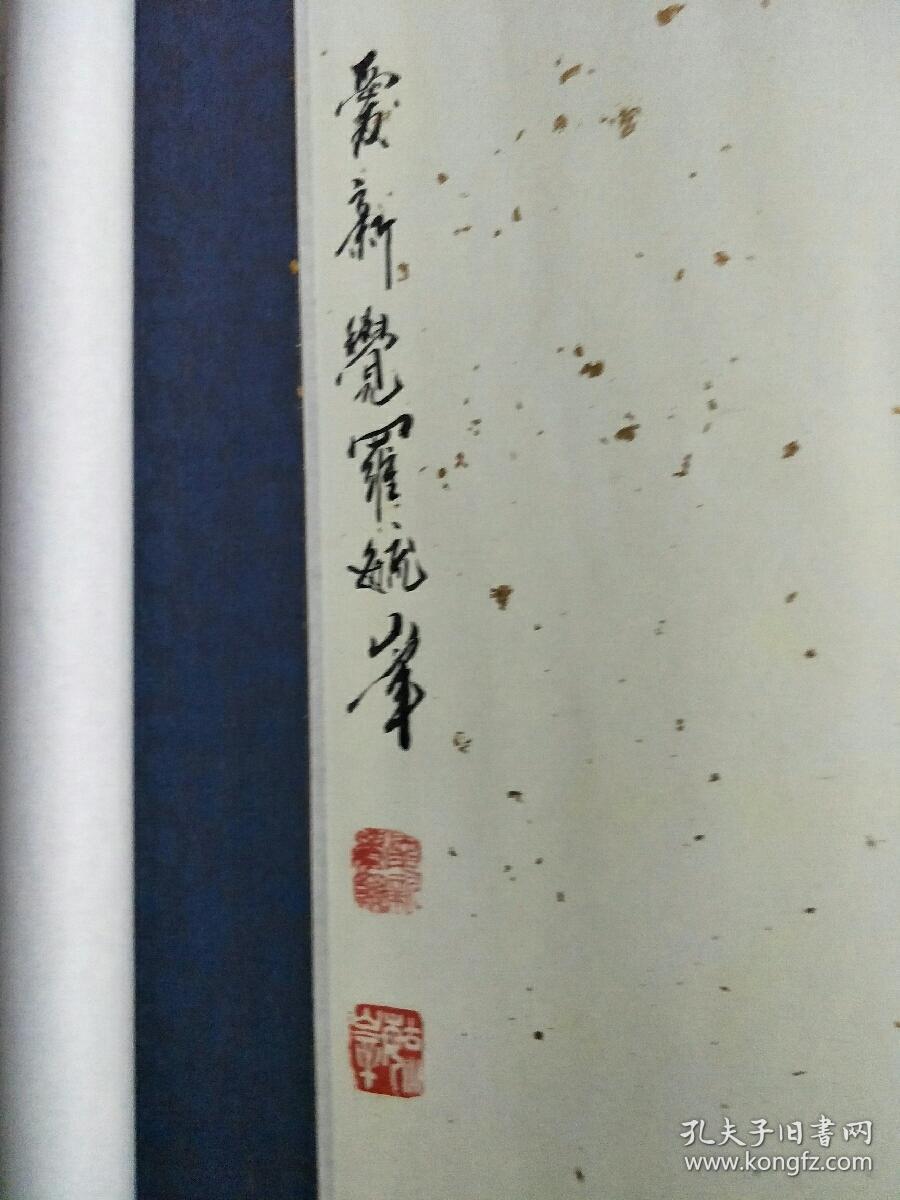 爱新覺羅毓峯
孔夫子旧書网
www.kongfz.com